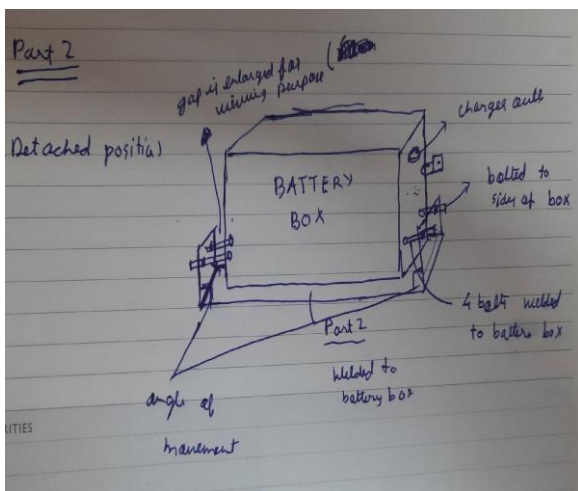 Part 2
gap is enlarged for
viewing purpose
Detached position
charger outlet
BATTERY
BOX
bolted to
side of box
4 bolts welded
to battery box
Part 2
Welded to
battery box
angle of
movement
RITIES